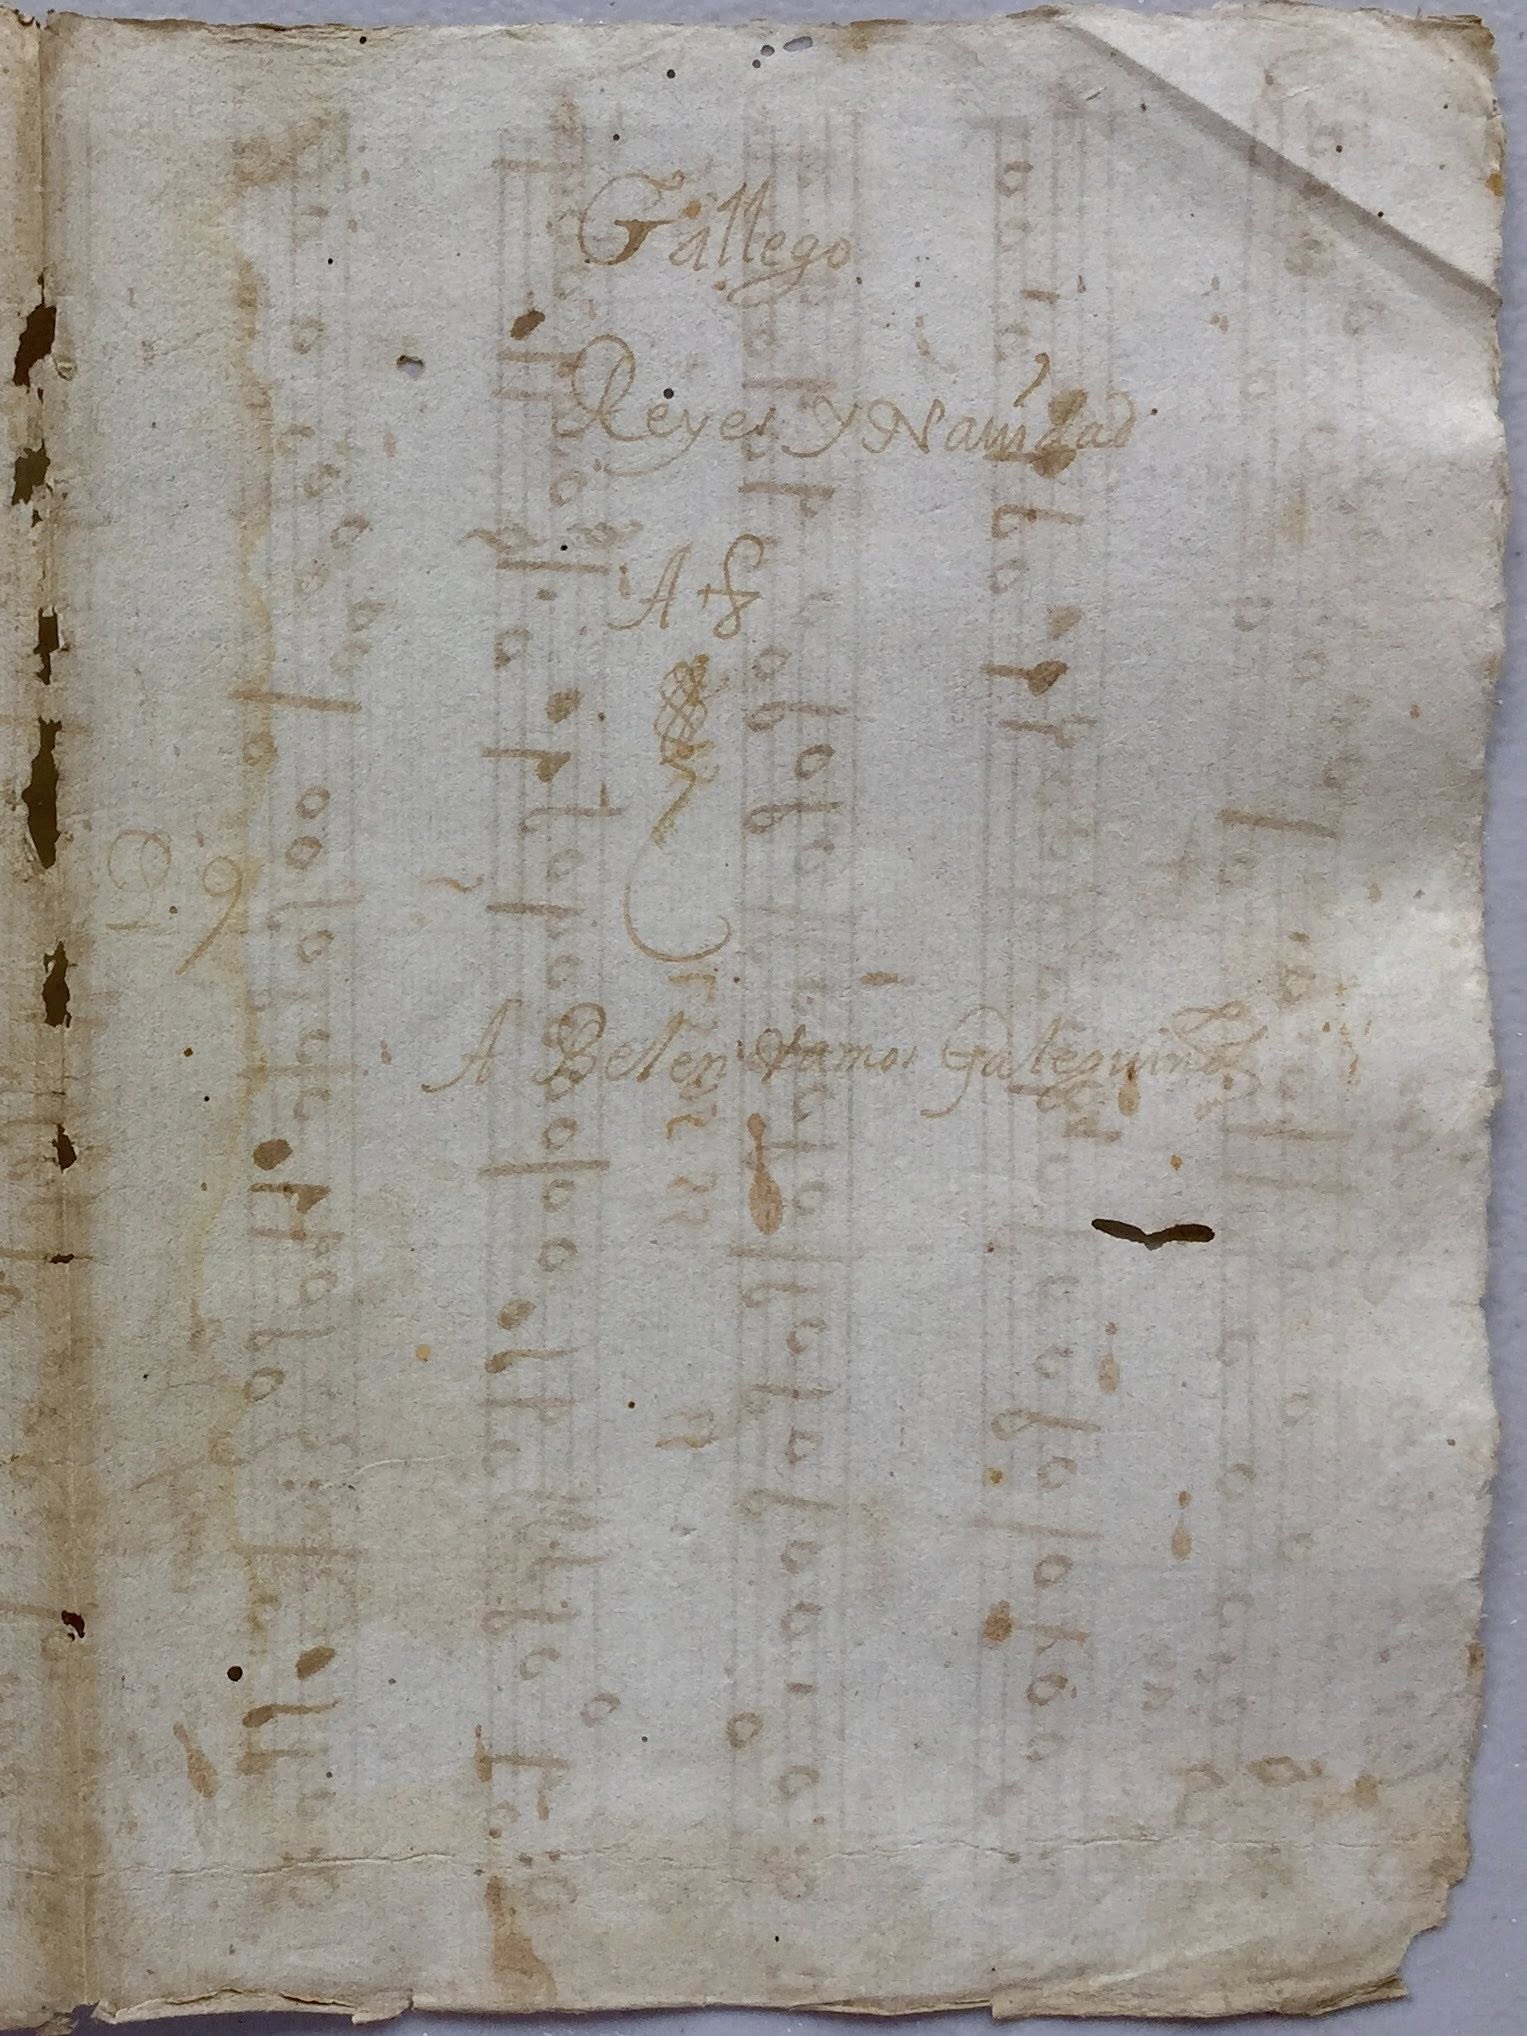 Gallego
Reyes y Navidad
A 8
D. 9
A Belen vamos Galeguiños